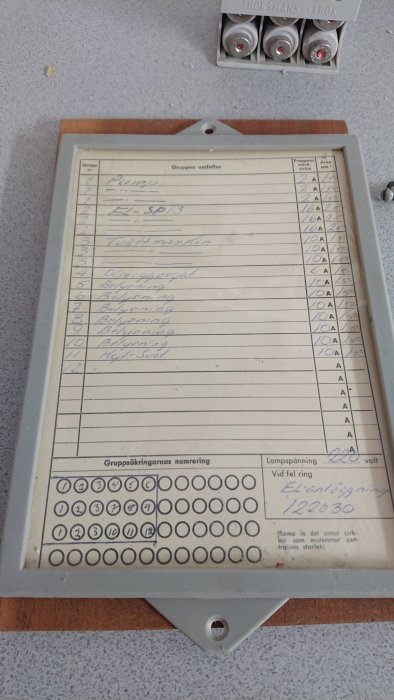 THORSMANS ELBOX
Grupp nr. Gruppen omfattar Proppens märkström Area mm²
1 Pump 2 A 1,5
1 — " — 2 A 1,5
1 — " — 2 A 1,5
2 EL-SPIS 16 A 2,5
2 — " — 16 A 2,5
2 — " — 16 A 2,5
3 Tvättmaskin 10 A 1,5
3 — " — 10 A 1,5
3 — " — 10 A 1,5
4 Oljeaggregat 6 A 1,5
5 Belysning 10 A 1,5
6 Belysning 10 A 1,5
7 Belysning 10 A 1,5
8 Belysning 10 A 1,5
9 Belysning 10 A 1,5
10 Belysning 10 A 1,5
11 Kyl-Sval 10 A 1,5
12 A
A
A
A
A
A
Gruppsäkringarnas numrering
Lampspänning 220 volt
Vid fel ring
El-anläggning
122030
1 2 3 4 5 6
1 2 3 7 8 9
1 2 3 10 11 12
(Rama in det antal cirk-
lar som motsvarar cen-
tralens storlek)